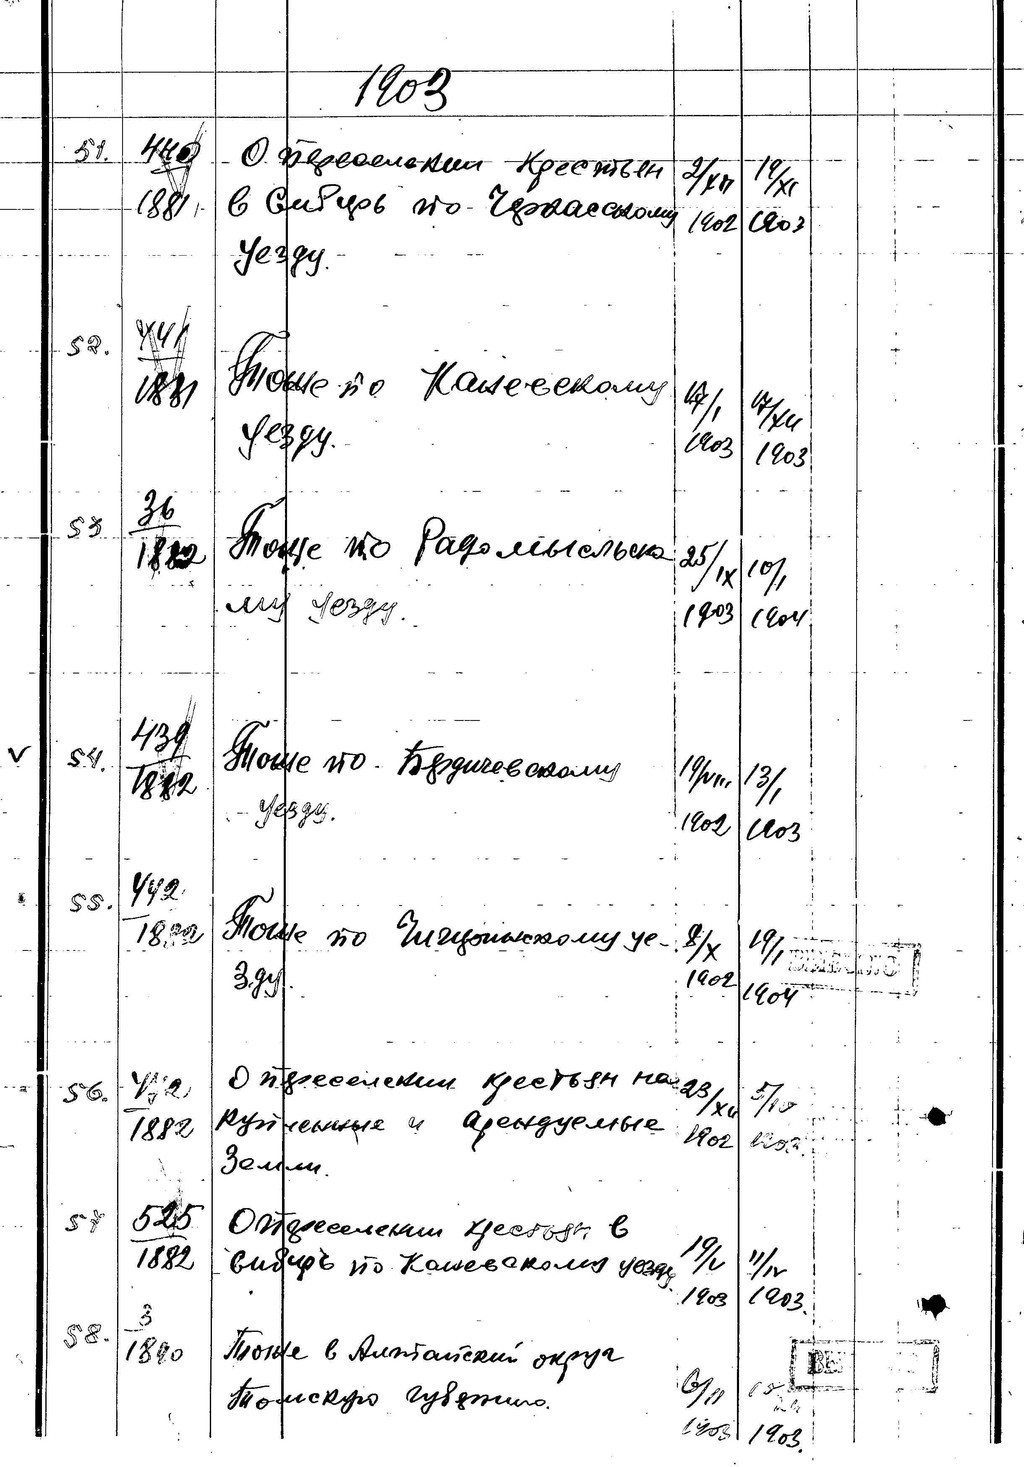 1903
51. 440 О переселении крестьян 2/XII 19/XI
1881 в Сибирь по Черкасскому 1902 1903
уезду.
52. 441
1881 Тоже по Каневскому 17/I 17/XII
уезду. 1903 1903
53 36
1882 Тоже по Радомысльско 25/IX 10/I
му уезду. 1903 1904
V 54. 439 Тоже по Бердичевскому 19/VIII 13/I
1882 уезду. 1902 1903
55. 442
1882 Тоже по Чигиринскому уе- 8/X 19/I
зду. 1902 1904
56. О переселении крестьян на 23/XII 5/IV
1882 купленные и арендуемые 1902
земли.
57 525 О переселении крестьян в
1882 Сибирь по Каневскому уезду 19/V 11/IV
1903 1903.
58. 3
1890 Тоже в Алтайский округ
Томскую губернию. 6/II
1903 1903.